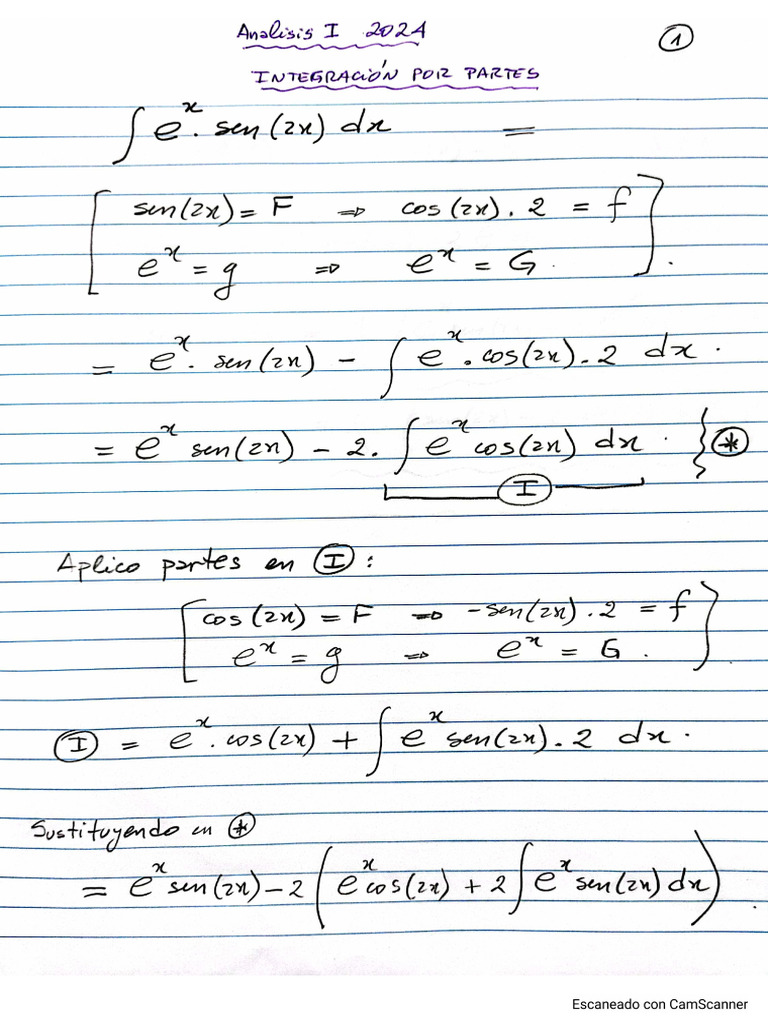 Analisis I 2024
①
INTEGRACIÓN POR PARTES
∫ e^x. sen(2x) dx =
[ sen(2x) = F ⇒ cos(2x). 2 = f ]
[ e^x = g ⇒ e^x = G. ].
= e^x. sen(2x) - ∫ e^x. cos(2x). 2 dx.
= e^x sen(2x) - 2. ∫ e^x cos(2x) dx. } ⊛
Ⓘ
Aplico partes en Ⓘ:
[ cos(2x) = F ⇒ -sen(2x). 2 = f ]
[ e^x = g ⇒ e^x = G. ]
Ⓘ = e^x. cos(2x) + ∫ e^x sen(2x). 2 dx.
Sustituyendo en ⊛
= e^x sen(2x) - 2 ( e^x cos(2x) + 2 ∫ e^x sen(2x) dx ).
Escaneado con CamScanner